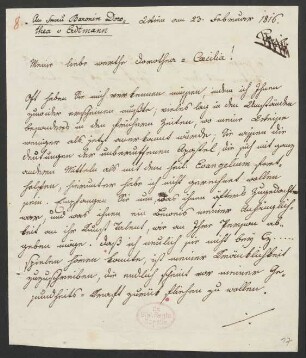 8. An Frau Baronin Doro-
thea v Ertmann
Wien am 23. Februar 1816.
Meine liebe werthe Dorothea-Cäcilia!
Oft haben Sie mich verkennen müssen, indem ich Ihnen
zuwider erscheinen mußte, vieles lag in den Umständen
besonders in den früheren Zeiten, wo meine Weise
weniger als jetzt anerkannt wurde. Sie wissen die
Deutungen der unberufenen Apostel, die sich mit ganz
andern Mitteln als mit dem heil. Evangelium fort-
helfen, hierunter habe ich nicht gerechnet wollen
seyn. Empfangen Sie nun was ihnen öfters zugedacht
war und was ihnen ein Beweis meiner Anhänglich-
keit an ihr Kunsttalent, wie an ihre Person ab-
geben möge. Daß ich neulich Sie nicht bey Cz.....
spielen hören konnte, ist meiner Kränklichkeit
zuzuschreiben, die endlich scheint vor meiner Ge-
sundheits-Kraft zurück fliehen zu wollen.